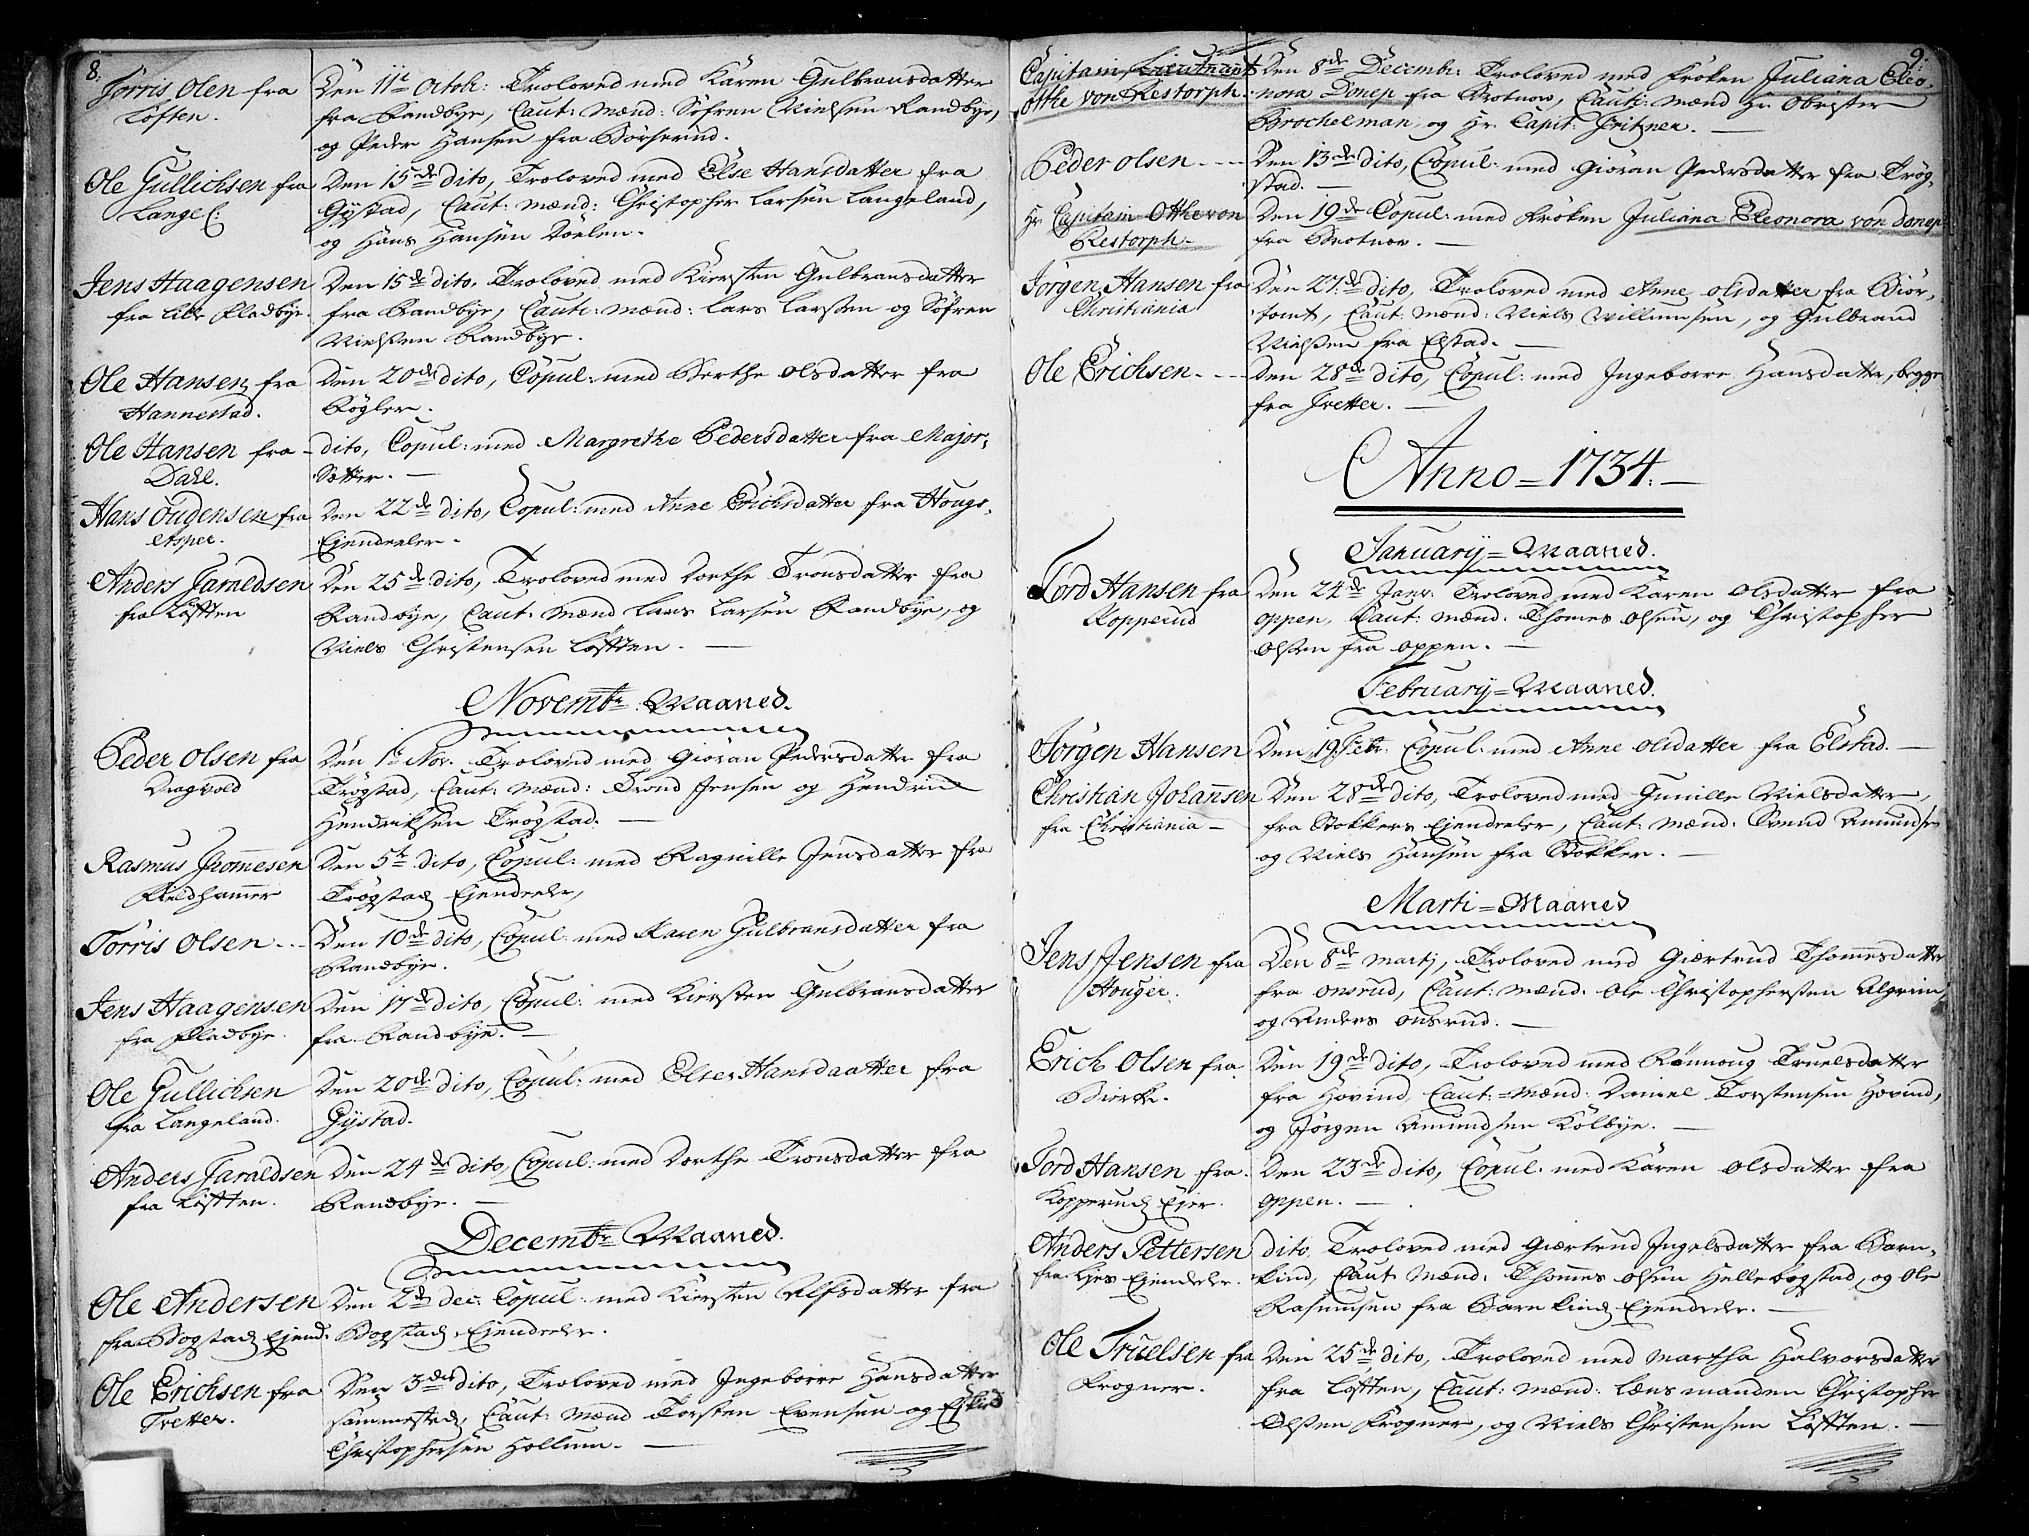 8.
Torris Olen fra
Løften.
Den 11te Octob: Troloved med Karen Gulbransdatter
fra Randbye, Caut: Mænd: Søfren Nielsen Randbye,
og Peder Hansen fra Børserud.
Ole Gullichsen fra
Langel:
Den 15de dito, Troloved med Else Hansdatter fra
Gystad, Caut: Mænd: Christopher Larsen Langeland,
og Hans Hansen Voelen.
Jens Haagensen
fra lille Fladbye.
Den 15de dito, Troloved med Kiersten Gulbransdatter
fra Randbye, Caut: Mænd: Lars Larssen og Søfren
Nielssen Randbye.
Ole Hansen fra
Hannestad.
Den 20de dito, Copul: med Berthe Olsdatter fra
Røgler.
Ole Hansen fra -
Dahl.
dito, Copul: med Margrethe Pedersdatter fra Major,
Sætter. —
Hans Ougensen fra
Asper.
Den 22de dito, Copul: med Anne Erichsdatter fra Hougs,
Ejendeeler.
Anders Jaraldsen
fra Løften
Den 25de dito, Troloved med Dorthe Tronsdatter fra
Randbye, Caut: Mænd Lars Larsen Randbye, og
Niels Christensen Løften. —
Novembr: Maaned.
Peder Olsen fra
Dragvold
Den 1te Nov. Troloved med Giøran Pedersdatter fra
Trøgstad, Caut: Mænd: Trond Jensen og Hendrich
Hendrichsen Trøgstad. —
Rasmus Jromesen
Fieldhammer
Den 5te dito, Copul: med Ragnille Jensdatter fra
Trøgstad Ejendeele,
Torris Olsen - - -
Den 10de dito, Copul: med Karen Gulbransdatter fra
Randbye.
Jens Haagensen
fra Fladbye.
Den 17de dito, Copul: med Kiersten Gulbransdatter
fra Randbye. —
Ole Gullichsen
fra Langeland.
Den 20de dito, Copul: med Else Hansdaatter fra
Gystad.
Anders Jaraldsen
fra Løften.
Den 24de dito, Copul: med Dorthe Tronsdatter fra
Randbye. —
Decembr Maaned.
Ole Andersen
fra Bogstad Ejend:
Den 2de Dec: Copul: med Kiersten Alfsdatter fra
Bogstad Ejendeele.
Ole Erichsen fra
Tretter.
Den 3de dito, Troloved med Ingeborre Hansdatter
sammestad, Caut: Mænd Torsten Evensen og Eskild
Christophersen Hollum. —
9.
Capitain Lieutnant
Otthe von Restorph.
Den 8de Decembr: Troloved med Frøken Juliana Eleo,
nora Donep fra Brotnow, Caut: Mænd Hr. Obrister
Brochelman og Hr. Capit: Fritzner. —
Peder Olsen - - - -
Den 13de dito, Copul: med Giøran Pedersdatter fra Trøg,
stad. —
Hr Capitain Otthe von
Restorph -
Den 19de Copul: med Frøken Juliana Eleonora von Donep
fra Brotnow. —
Jørgen Hansen fra
Christiania
Den 27de dito, Troloved med Anne Olsdatter fra Biør,
tomt, Caut: Mænd: Niels Willumsen, og Gulbrand
Nielssen fra Elstad. —
Ole Erichsen. - - -
Den 28de dito, Copul: med Ingeborre Hansdatter, begge
fra Tretter. —
Anno = 1734. —
Januarij = Maaned.
Tord Hansen fra
Kopperud
Den 24de Janr: Troloved med Karen Olsdatter fra
Oppen, Caut: Mænd: Thomes Olsen, og Christopher
Olssen fra Oppen. —
Februarij = Maaned.
Jørgen Hansen
Den 19 Febr: Copul: med Anne Olsdatter fra Elstad. —
Christian Johansen
fra Christiania —
Den 28de dito, Troloved med Gunille Nielsdatter,
fra Stokkers Ejendeeler, Caut: Mænd: Svend Amundsen
og Niels Hansen fra Stokker. —
Marti = Maaned
Jens Jensen fra
Houger.
Den 8de Martj, Troloved med Giertrud Thommesdatter
fra Onsrud, Caut: Mænd: Ole Christophersen Algrim,
og Anders Onsrud. —
Erich Olsen fra
Biercke.
Den 19de dito, Troloved med Rønnoug Truelsdatter
fra Hovind, Caut: = Mænd: Daniel Torstensen Hovind,
og Jørgen Amundsen Kølbye. —
Tord Hansen fra
Kopperud Ejer.
Den 23de dito, Copul: med Karen Olsdatter fra
Oppen. — .
Anders Pettersen
fra Lies Ejendeele.
dito Troloved med Giertrud Ingelsdatter fra Barn,
kind, Caut: Mænd: Thommes Olsen Hellebogstad, og Ole
Rasmusen fra Barnkind Ejendeele. —
Ole Truelsen fra
Frogner.
Den 25de dito, Troloved med Martha Halvorsdatter
fra Løften, Caut: Mænd: Lænsmanden Christopher
Olssen Frogner, og Niels Christensen Løften. —